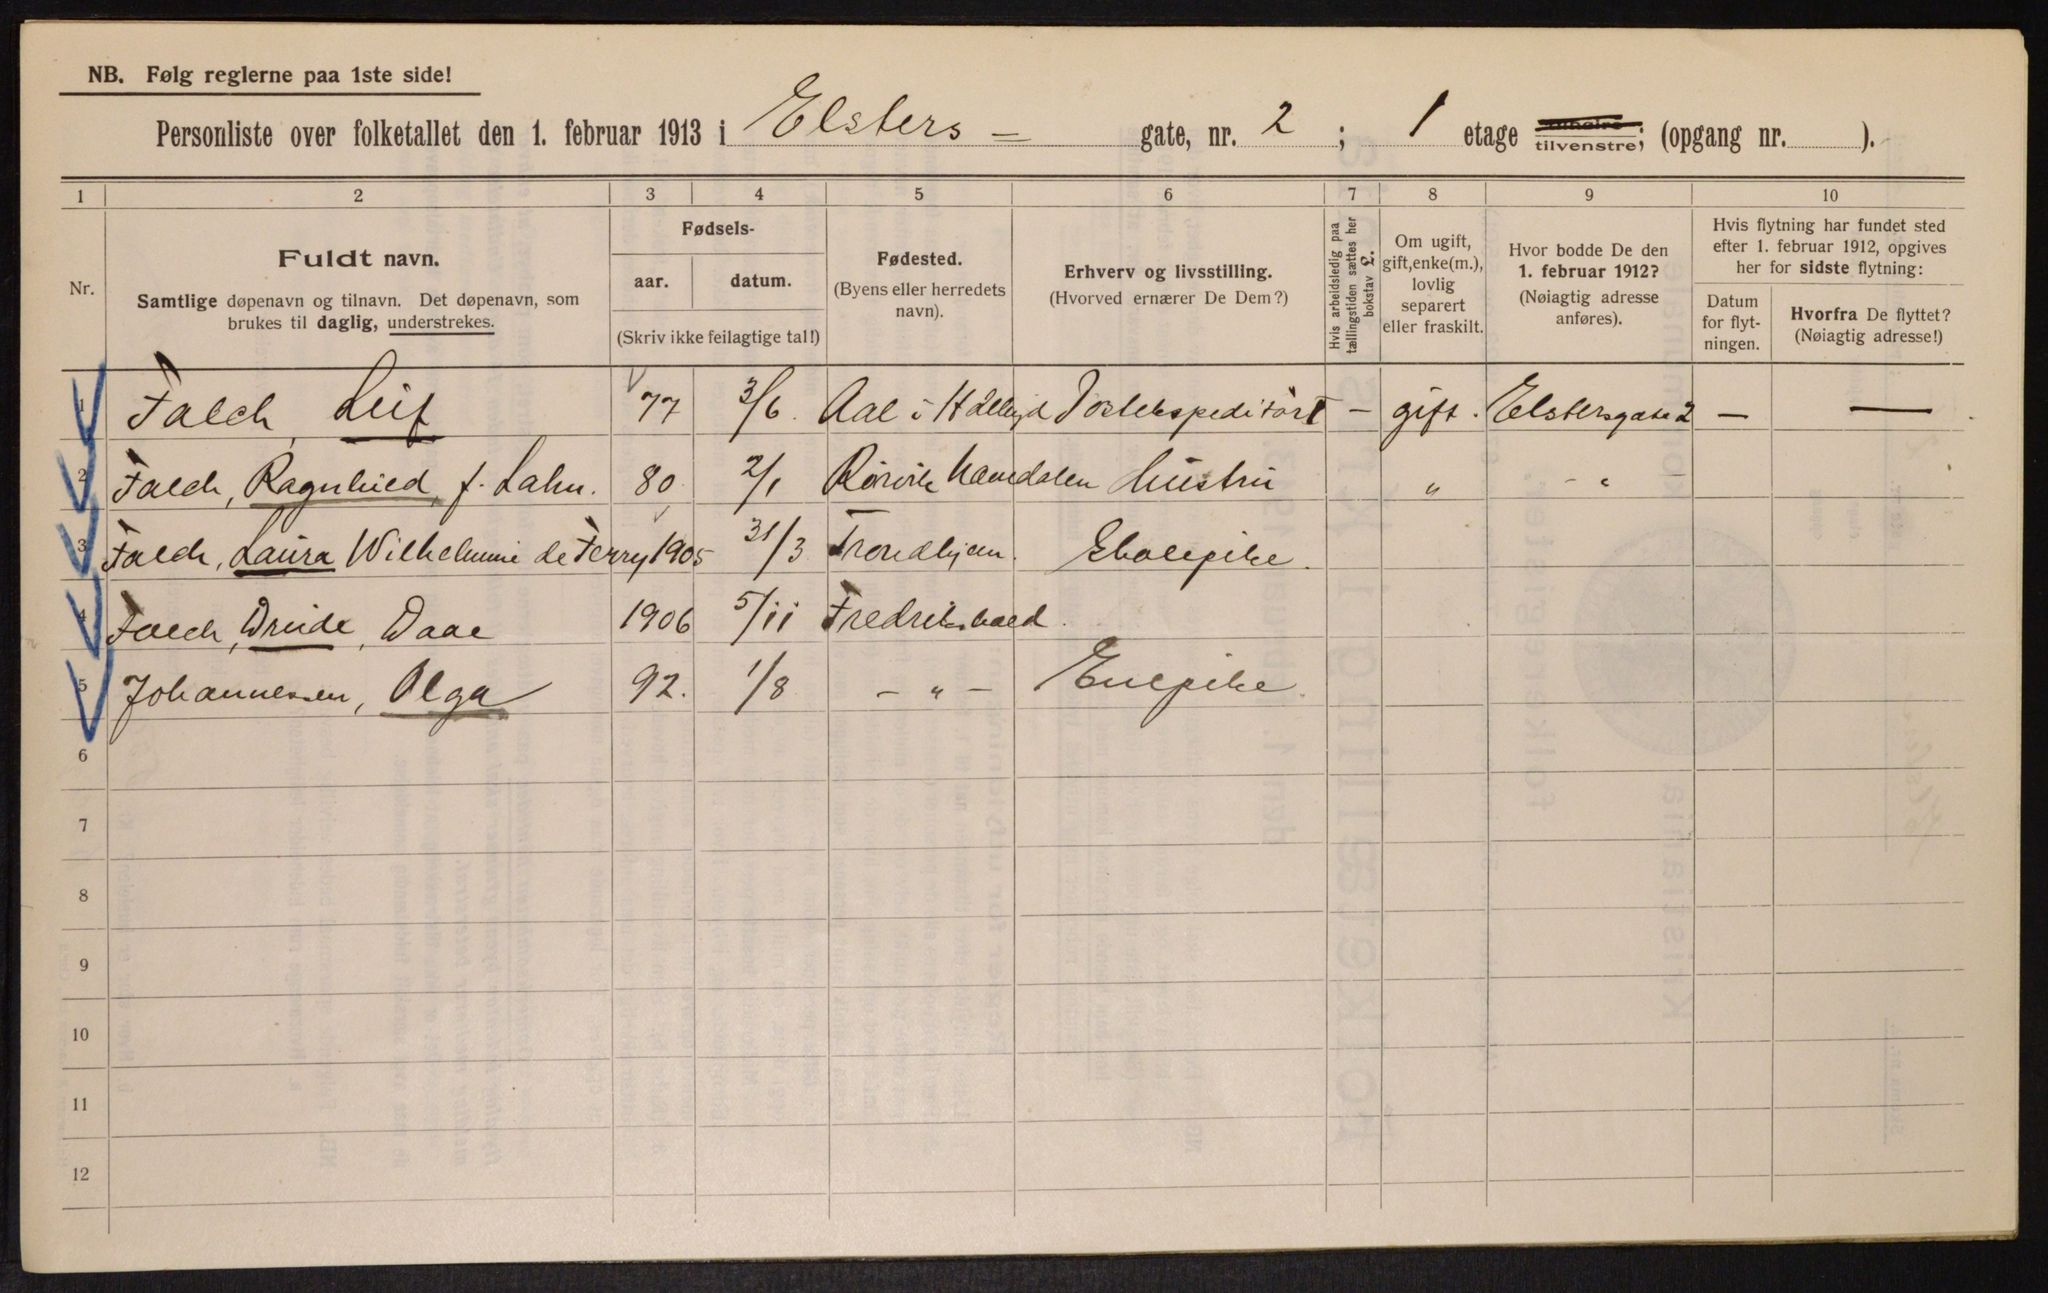 NB. Følg reglerne paa 1ste side!
Personliste over folketallet den 1. februar 1913 i Elsters - gate, nr. 2 ; 1 etage tilvenstre; (opgang nr. ).
1 2 3 4 5 6 7 8 9 10
Nr.
Fuldt navn.
Samtlige døpenavn og tilnavn. Det døpenavn, som
brukes til daglig, understrekes.
Fødsels-
aar. datum.
(Skriv ikke feilagtige tal!)
Fødested.
(Byens eller herredets
navn).
Erhverv og livsstilling.
(Hvorved ernærer De Dem?)
Hvis arbeidsledig paa
tællingstiden sættes her
bokstav L.
Om ugift,
gift, enke(m.),
lovlig
separert
eller fraskilt.
Hvor bodde De den
1. februar 1912?
(Nøiagtig adresse
anføres).
Hvis flytning har fundet sted
efter 1. februar 1912, opgives
her for sidste flytning:
Datum
for flyt-
ningen.
Hvorfra De flyttet?
(Nøiagtig adresse!)
1 Falch, Leif 77 3/6. Aal i Hallingd Postekspeditør - gift. Elstersgate 2 — —
2 Falch, Ragnhild, f. Lahn. 80 2/1 Rörvik Namdalen Hustru " - "
3 Falch, Laura Wilhelmine de Ferry 1905 31/3 Trondhjem. Skolepike.
4 Falch, Daae 1906 5/11 Fredrikshald.
5 Johannessen, Olga 92. 1/8 - " - Enepike.
6
7
8
9
10
11
12